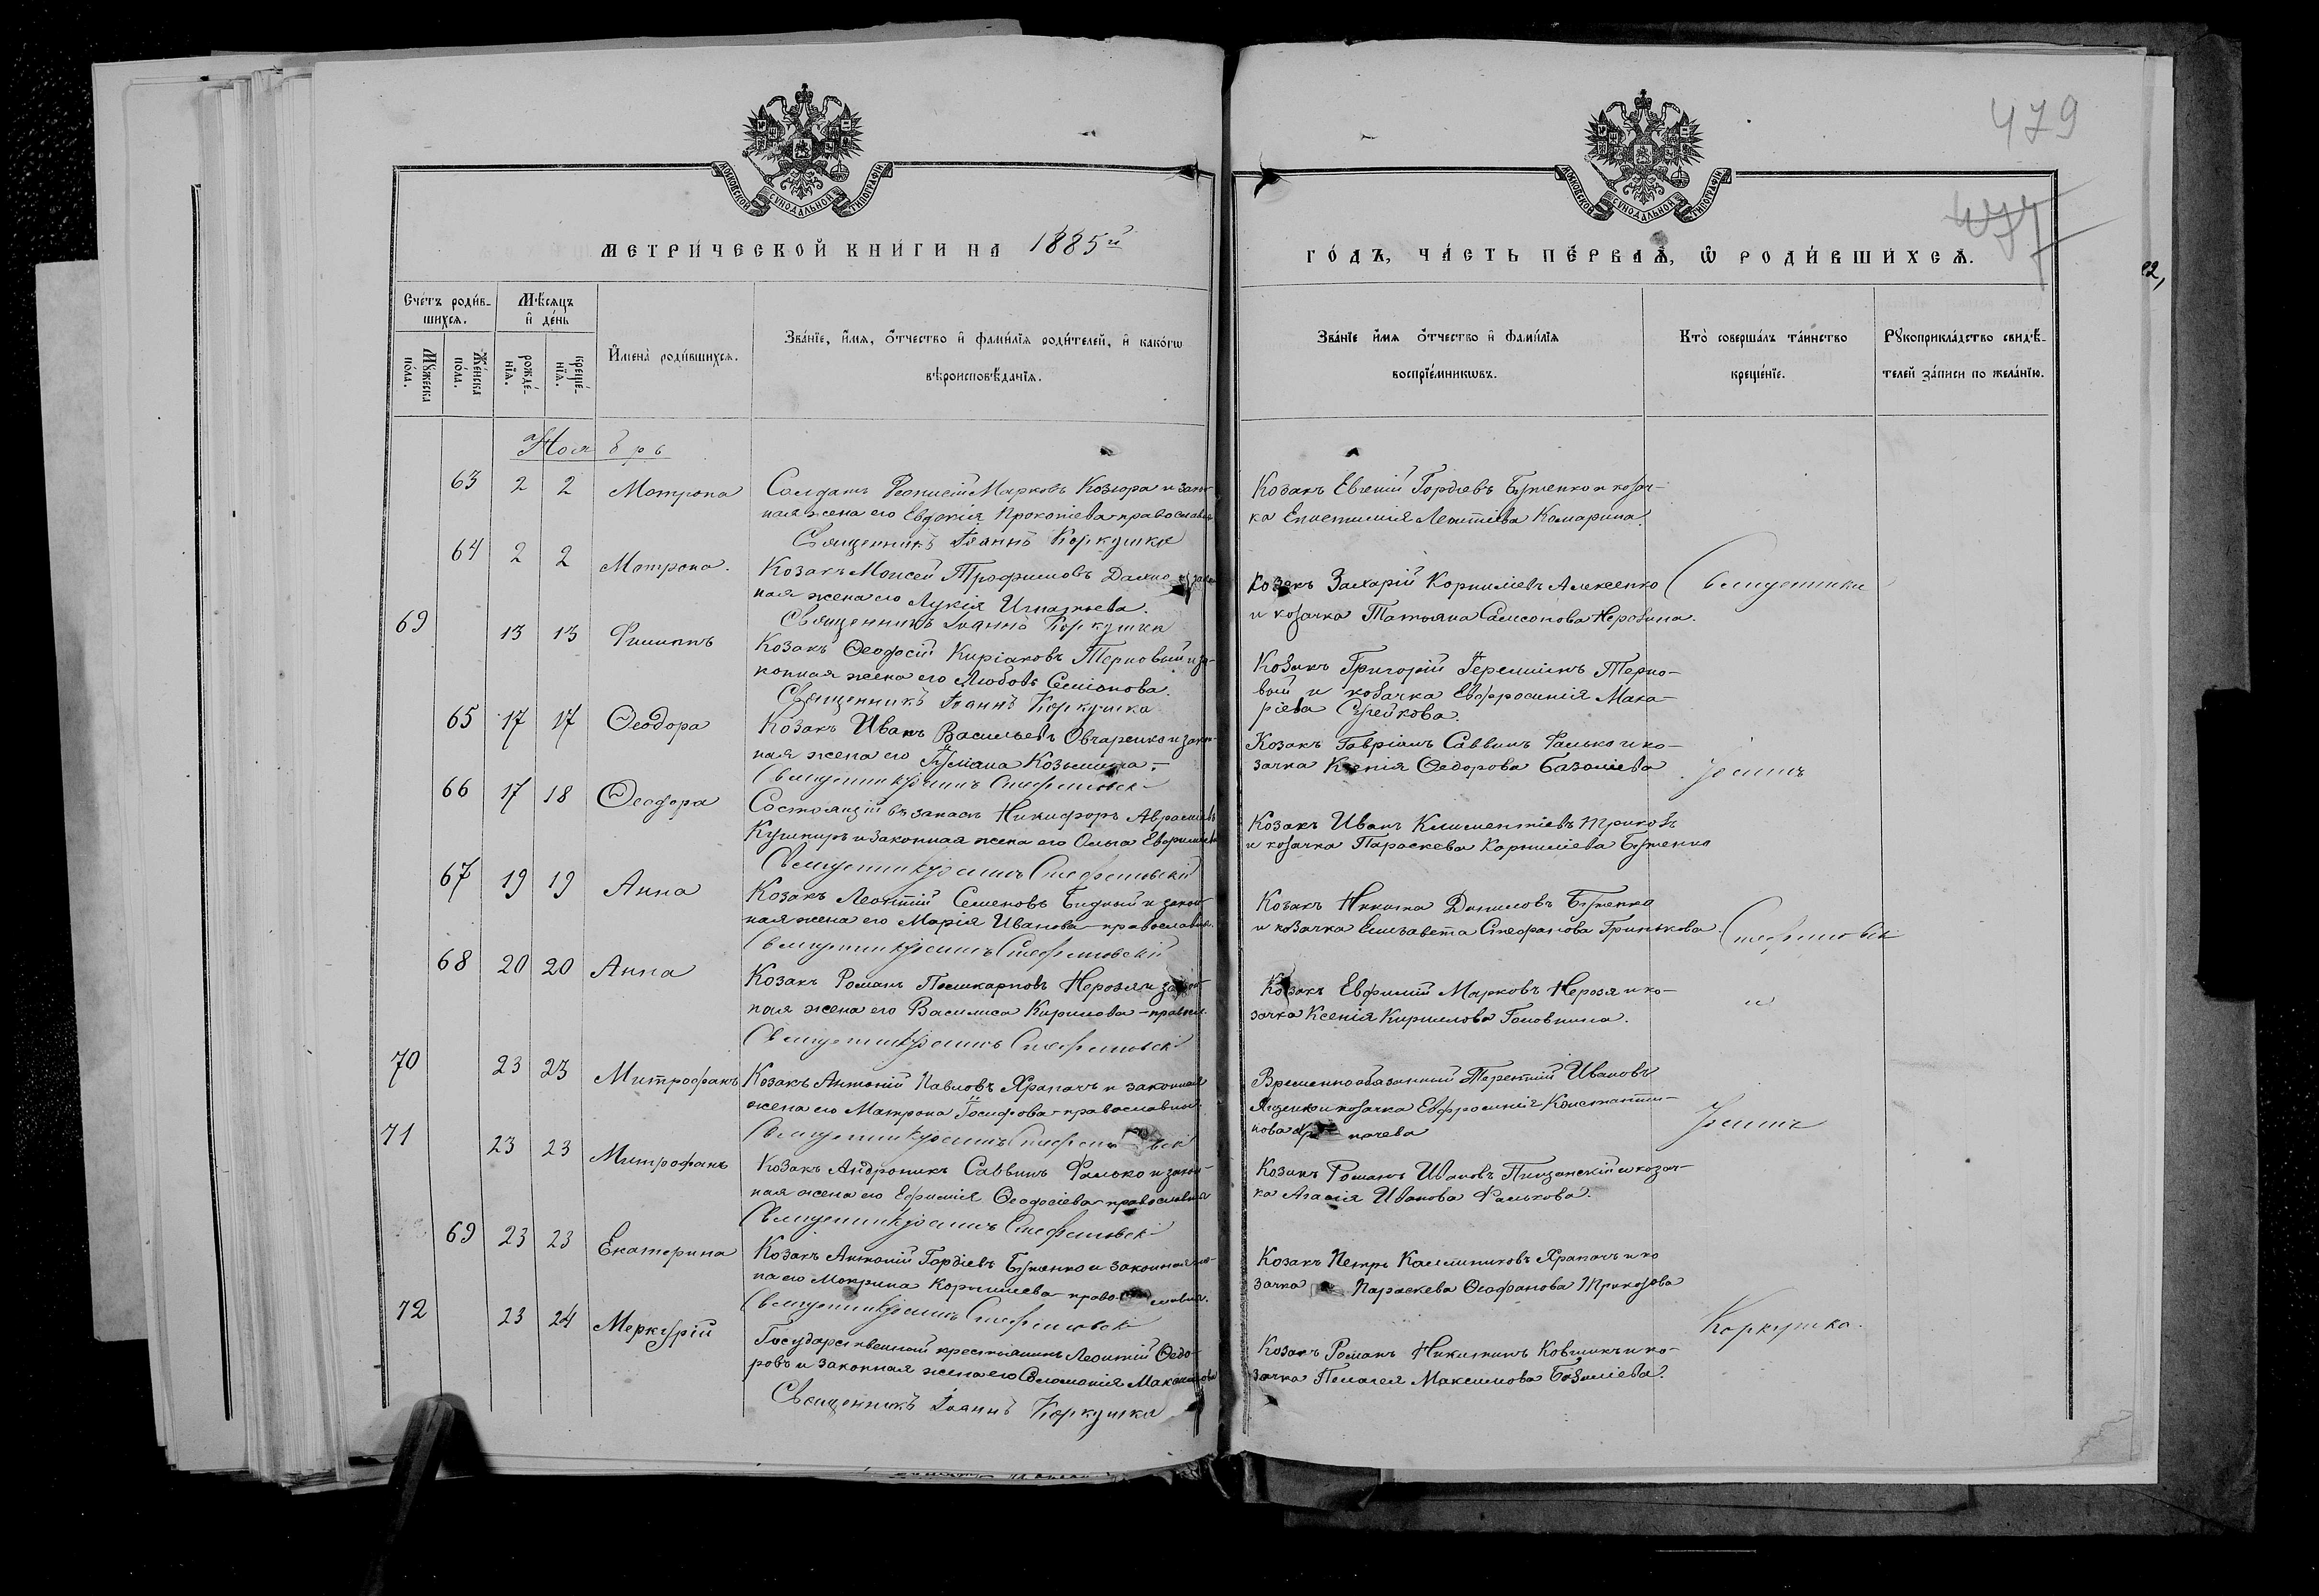 479
477
МОСКОВСКОЙ СѴНОДАЛЬНОЙ ТИПОГРАФІИ
МОСКОВСКОЙ СѴНОДАЛЬНОЙ ТИПОГРАФІИ
МЕТРИ́ЧЕСКОЙ КНИ́ГИ НА 1885й
ГО́ДЪ, ЧА́СТЬ ПЕ́РВАѦ, Ѡ҆ РОДИ́ВШИХСѦ.
Сче́тъ роди́в-
шихсѧ.
Мѣ́сѧцъ
и҆ де́нь
И҆мена̀ роди́вшихсѧ.
Зва́нїе, и҆́мѧ, ѻ҆́тчество и҆ фами́лїѧ роди́телей, и҆ како́гѡ
вѣроисповѣ́данїѧ.
Мꙋ́жеска
по́ла.
Же́нска
по́ла.
рожде́-
нїѧ.
креще́-
нїѧ.
Зва́нїе и҆́мѧ ѻ҆́тчество и҆ фами́лїѧ
воспрїе́мникѡвъ.
Кто̀ соверша́лъ та́инство
креще́нїе.
Рꙋкоприкла́дство свидѣ́-
телей за́писи по жела́нїю.
Ноябрь
63 2 2 Матрона Солдатъ Марковъ Козюра и закон-
ная жена его Евдокія Прокопіева православн
Священникъ Іоаннъ Коркушка
Козакъ Евгеній Гордіевъ Бутенко и козач-
ка Епистимія Леонтіева Комарина.
64 2 2 Матрона. Козакъ Моисей Трофимовъ Дахно и закон
ная жена его Лукія Игнатьева.
Священникъ Іоаннъ Коркушка
Козакъ Захарій Корниліевъ Алексенко
и козачка Татьяна Самсонова Нерозина.
Священники
69 13 13 Филиппъ Козакъ Ѳеодосій Киріаковъ Терновый и за-
конная жена его Любовь Симонова.
Священникъ Іоаннъ Коркушка
Козакъ Григорій Іереміинъ Терно-
вый и козачка Евфросинія Мака-
ріева
65 17 17 Ѳеодора Козакъ Иванъ Васильевъ Овчаренко и закон-
ная жена его Іуліана Козьмина.-
Священникъ Іоаннъ Стефановскій
Козакъ Гавріилъ Саввинъ Фалько и ко-
зачка Ксенія Ѳедорова Базалиева
Іоаннъ
66 17 18 Ѳеодора Состоящій въ запасѣ Никифоръ Аврамовъ
Кушниръ и законная жена его Ольга
Священникъ Іоаннъ Стефановскій
Козакъ Иванъ Климентіевъ
и козачка Параскева Корниліева Бутенко
67 19 19 Анна Козакъ Леонтій Семеновъ Бидный и закон-
ная жена его Марія Иванова - православн.
Священникъ Іоаннъ Стефановскій
Козакъ Никита Даниловъ Бутенко
и козачка Елисавета Стефанова Гринькова
Стефановскій
68 20 20 Анна Козакъ Романъ Поликарповъ Нерозя и закон-
ная жена его Василиса Кирилова - правосл.
Священникъ Іоаннъ Стефановскій
Козакъ Евфимій Марковъ Нерозя и ко-
зачка Ксенія Кириллова Головнина.
и
70 23 23 Митрофанъ Козакъ Антоній Павловъ Храпачъ и законная
жена его Матрона Іосифова - православной
Священникъ Іоаннъ Стефановскій
Временнообязанный Терентій Ивановъ
Яценко и козачка Евфросинія Константи-
нова
Іоаннъ
71 23 23 Митрофанъ Козакъ Андроникъ Саввинъ Фалько и закон-
ная жена его Ефимія Ѳеодосіева - православной
Священникъ Іоаннъ Стефановскій
Козакъ Романъ Ивановъ Пищанскій и козач-
ка Агафія Иванова Фалькова.
69 23 23 Екатерина Козакъ Антоній Гордіевъ Бутенко и законная же-
на его Макрина Корниліева православн.
Священникъ Іоаннъ Стефановскій
Козакъ Петръ Каллиниковъ Храпачъ и ко
зачка Параскева Ѳеофанова
72 23 24 Меркурій Государственный крестьянинъ Леонтій Ѳедо-
ровъ и законная жена его Соломонія Максимова
Священникъ Іоаннъ Коркушка
Козакъ Романъ Никитинъ Ковшикъ и ко-
зачка Пелагея Максимова Базилиева.
Коркушка.